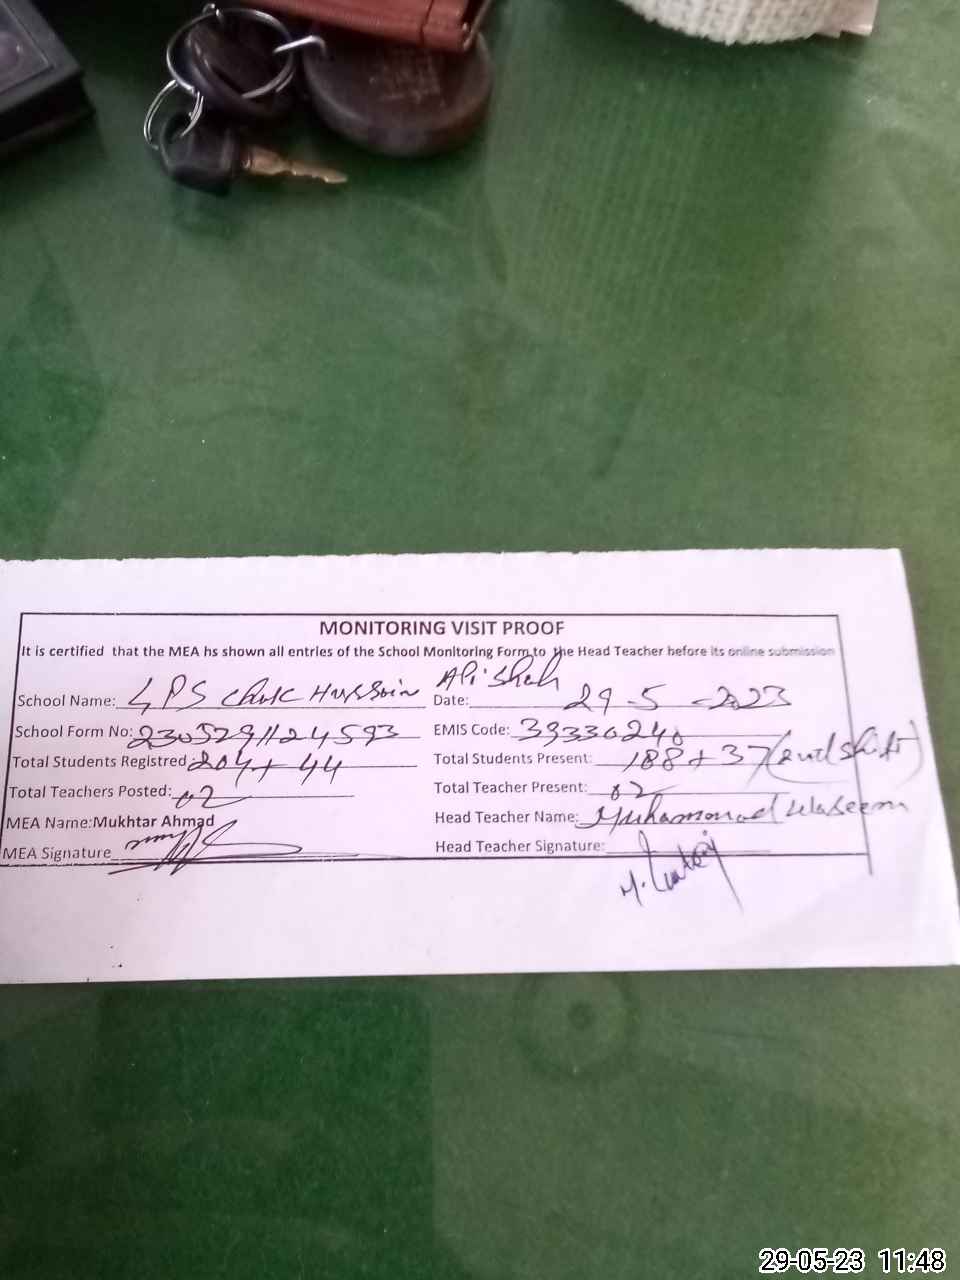 MONITORING VISIT PROOF
It is certified that the MEA hs shown all entries of the School Monitoring Form to the Head Teacher before its online submission
School Name: GPS Chak Hussain Ali Shah Date: 29-5-2023
School Form No: 2305291124593 EMIS Code: 39330240
Total Students Registred: 204+44 Total Students Present: 188+37 (2nd shift)
Total Teachers Posted: 02 Total Teacher Present: 02
MEA Name:Mukhtar Ahmad Head Teacher Name: Muhammad Waseem
MEA Signature Head Teacher Signature:
29-05-23 11:48